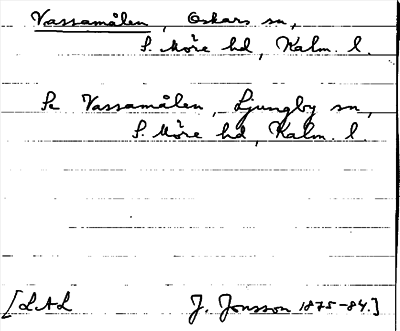 Vassamålen, Oskars sn,
S. Möre hd, Kalm. l.
Se Vassamålen, Ljungby sn,
S. Möre hd, Kalm. l.
[LAL J. Jonsson 1875-84.]